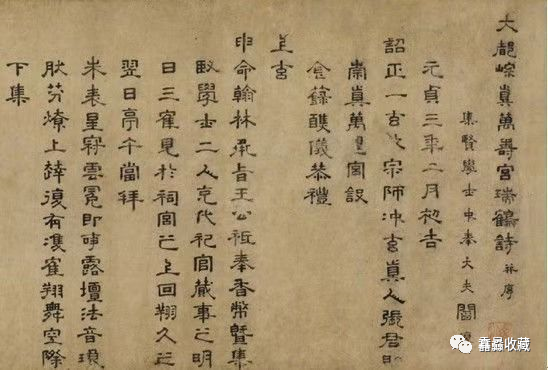 大都崇真萬壽宮瑞鶴詩并序
集賢學士中奉大夫閻
元貞三年二月初吉
詔正一玄教宗師冲玄真人張君
崇真萬壽宮設
金籙醮儀恭禮
上玄
申命翰林承旨王公祗奉香幣暨集
賢學士二人充代祀官蕆事之明
日三寉見於祠宮之上回翔久之
翌日亭午當拜
朱表星冠雲冕即事露壇法音
芬燎上復有寉翔舞空際
下集
蠢蟲收藏